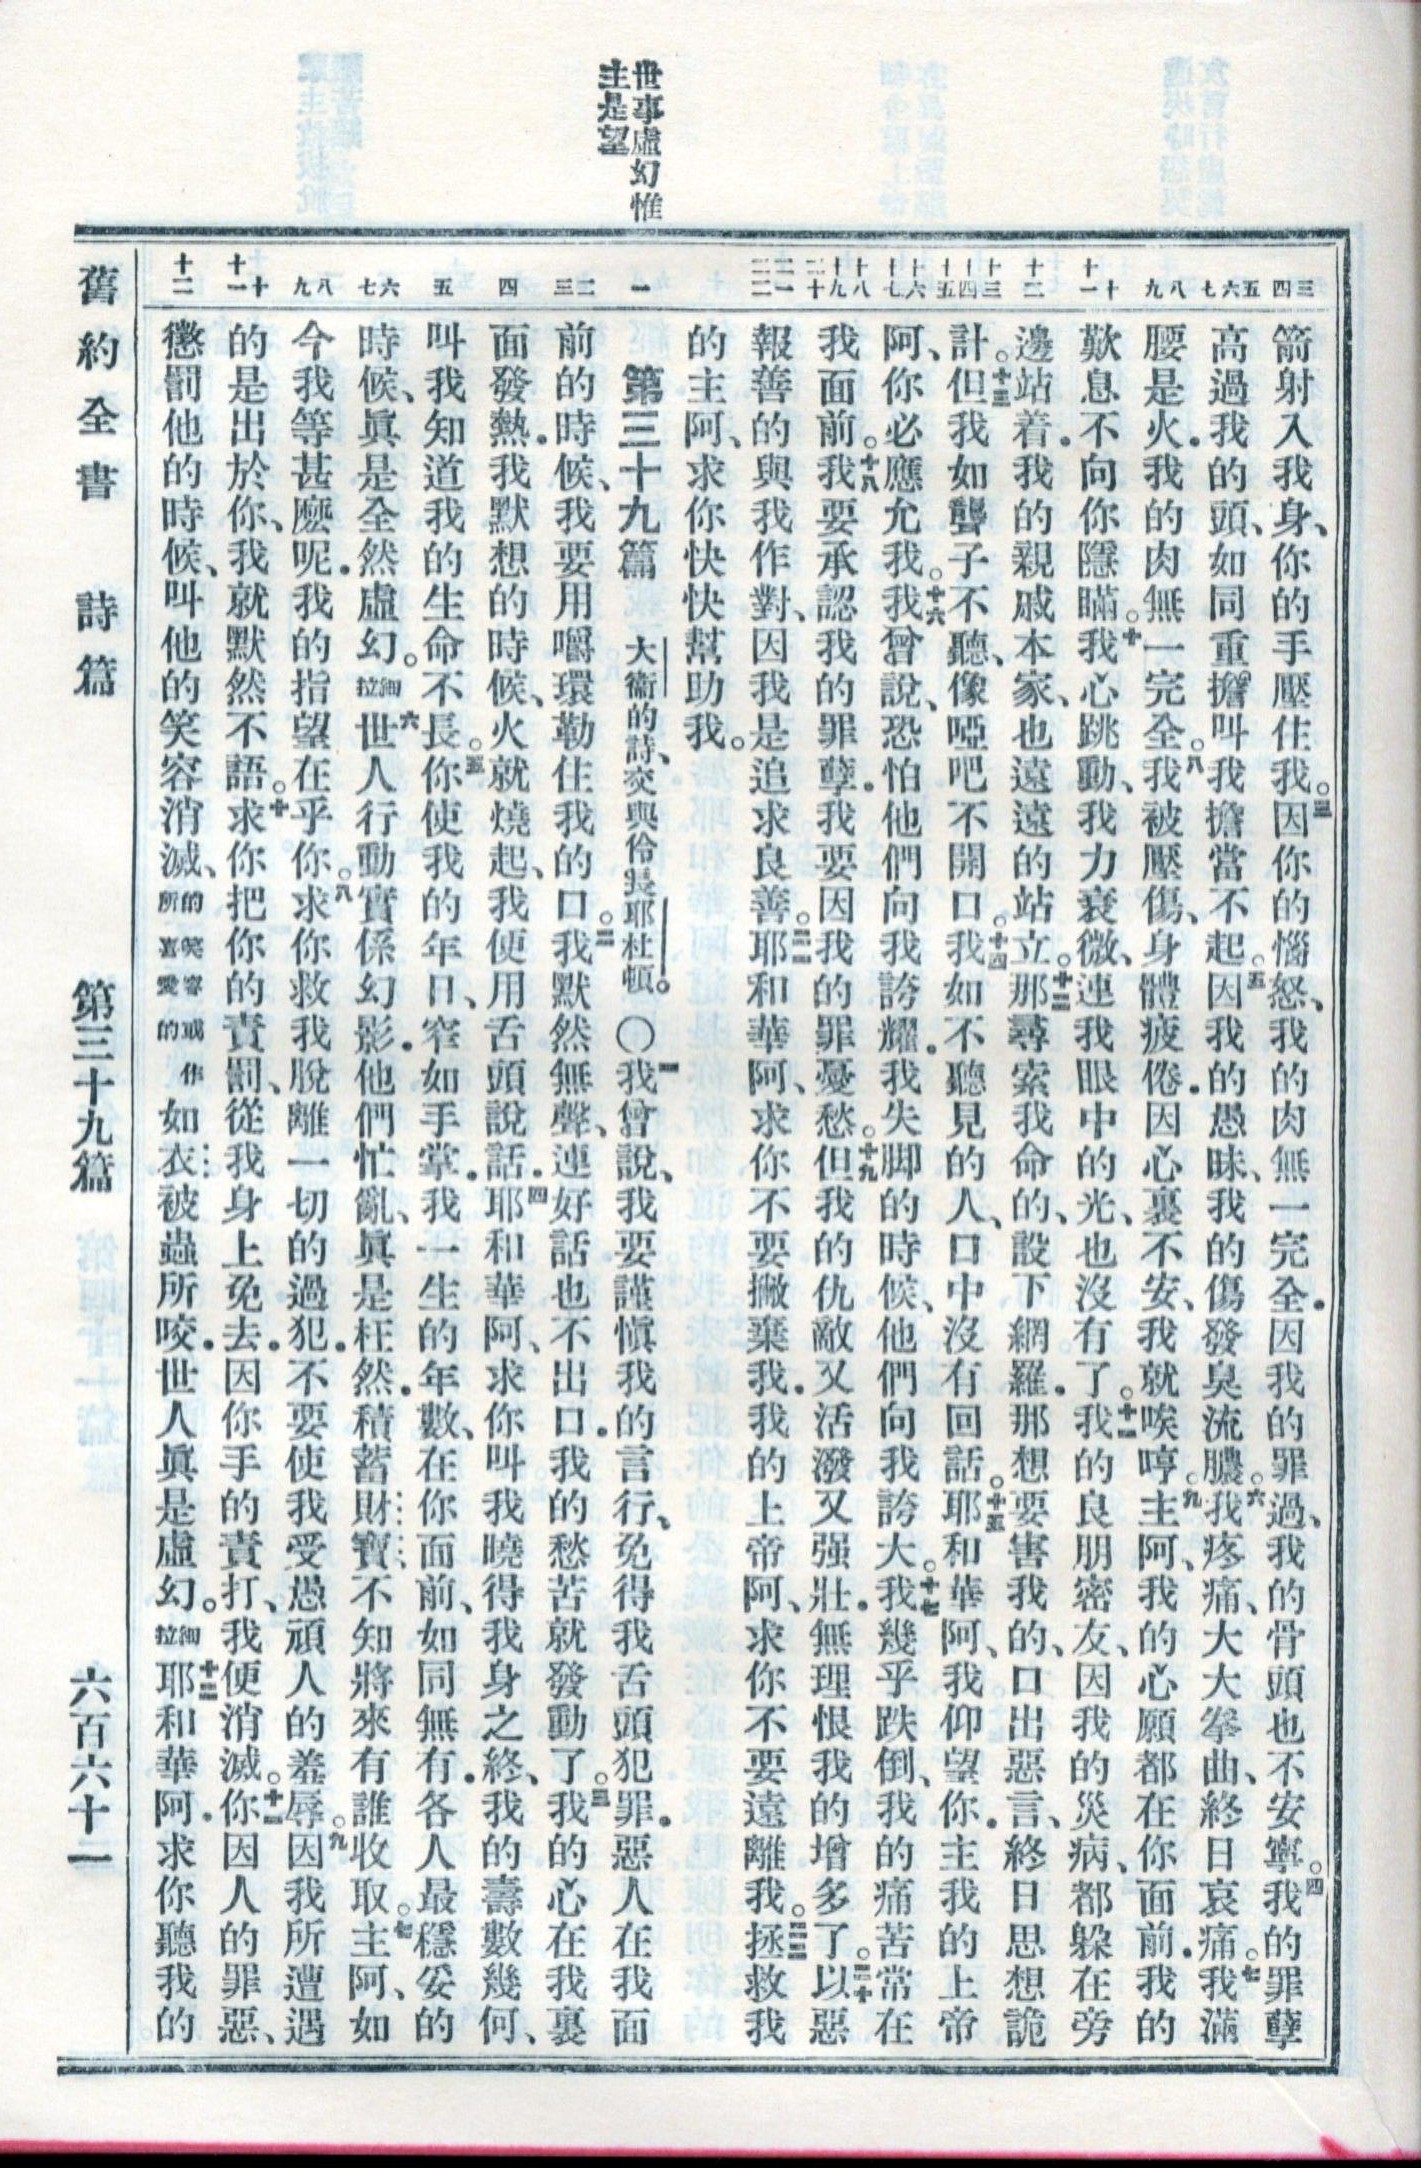 世事虛幻惟
主是望
三 四
五 六 七
八 九
十 十一
十二
十三 十四 十五
十六 十七
十八 十九 二十
二一 二二
一
二 三
四
五
六 七
八 九
十 十一
十二
箭射入我身、你的手壓住我。三因你的惱怒、我的肉無一完全．因我的罪過、我的骨頭也不安寧。四我的罪孽
高過我的頭、如同重擔叫我擔當不起。五因我的愚昧、我的傷發臭流膿。六我疼痛、大大拳曲、終日哀痛。七我滿
腰是火．我的肉無一完全。八我被壓傷、身體疲倦．因心裏不安、我就唉哼。九主阿、我的心願都在你面前．我的
歎息不向你隱瞞。十我心跳動、我力衰微、連我眼中的光、也沒有了。十一我的良朋密友、因我的災病、都躲在旁
邊站着．我的親戚本家、也遠遠的站立。十二那尋索我命的、設下網羅．那想要害我的、口出惡言、終日思想詭
計。十三但我如聾子不聽、像啞吧不開口。十四我如不聽見的人、口中沒有回話。十五耶和華阿、我仰望你．主我的上帝
阿、你必應允我。十六我曾說、恐怕他們向我誇耀．我失脚的時候、他們向我誇大。十七我幾乎跌倒、我的痛苦常在
我面前。十八我要承認我的罪孽．我要因我的罪憂愁。十九但我的仇敵又活潑又强壯．無理恨我的增多了。二十以惡
報善的與我作對、因我是追求良善。二一耶和華阿、求你不要撇棄我．我的上帝阿、求你不要遠離我。二二拯救我
的主阿、求你快快幫助我。
第三十九篇　大衞的詩、交與伶長耶杜頓。○一我曾說、我要謹愼我的言行、免得我舌頭犯罪．惡人在我面
前的時候、我要用嚼環勒住我的口。二我默然無聲、連好話也不出口．我的愁苦就發動了。三我的心在我裏
面發熱．我默想的時候、火就燒起、我便用舌頭說話．四耶和華阿、求你叫我曉得我身之終、我的壽數幾何、
叫我知道我的生命不長。五你使我的年日、窄如手掌．我一生的年數、在你面前、如同無有．各人最穩妥的
時候、眞是全然虛幻。細拉六世人行動實係幻影．他們忙亂、眞是枉然．積蓄財寶、不知將來有誰收取。七主阿、如
今我等甚麼呢．我的指望在乎你。八求你救我脫離一切的過犯．不要使我受愚頑人的羞辱。九因我所遭遇
的是出於你、我就默然不語。十求你把你的責罰、從我身上免去．因你手的責打、我便消滅。十一你因人的罪惡、
懲罰他的時候、叫他的笑容消滅、的笑容或作所喜愛的如衣被蟲所咬．世人眞是虛幻。細拉十二耶和華阿．求你聽我的
舊約全書　詩篇　第三十九篇　六百六十二